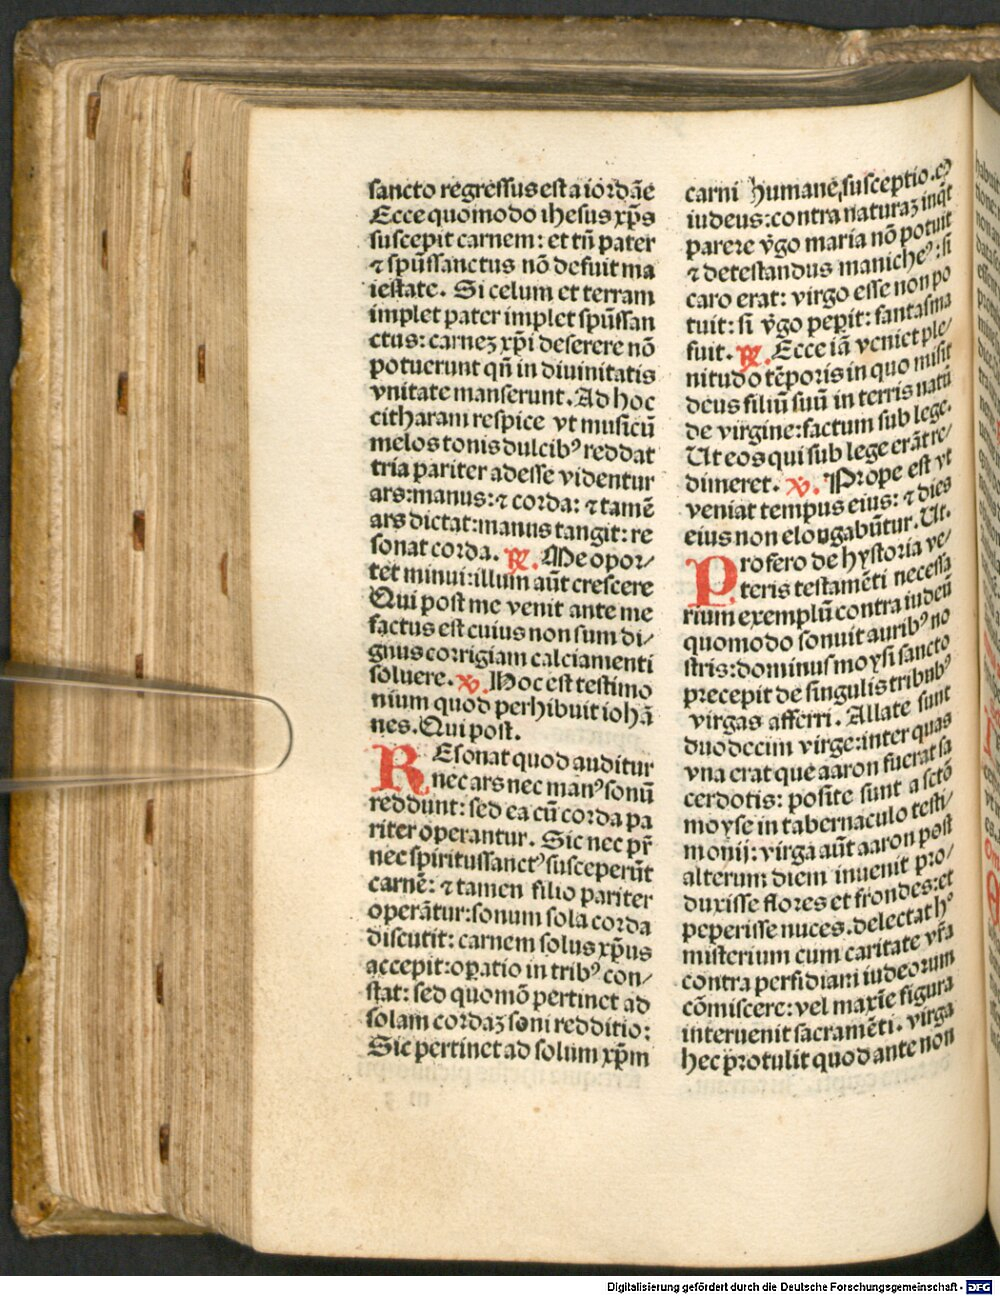 sancto regressus est a iordāe
Ecce quomodo ihesus xp̄s
suscepit carnem: et tn̄ pater
⁊ spūssanctus nō defuit ma
iestate. Si celum et terram
implet pater implet spūssan
ctus: carneꝫ xp̄i deserere nō
potuerunt qn̄ in diuinitatis
vnitate manserunt. Ad hoc
citharam respice vt musicū
melos tonis dulcibꝰ reddat
tria pariter adesse videntur
ars:manus:⁊ corda: ⁊ tamē
ars dictat:manus tangit: re
sonat corda. ℟. Me opor⸗
tet minui:illum aūt crescere
Qui post me venit ante me
factus est cuius non sum di⸗
gnus corrigiam calciamenti
soluere. ℣. Hoc est testimo
nium quod perhibuit iohā
nes. Qui post.
REsonat quod auditur
nec ars nec manꝰ sonū
reddunt: sed ea cū corda pa
riter operantur. Sic nec pr̄
nec spiritussanctꝰ susceperūt
carnē: ⁊ tamen filio pariter
operātur:sonum sola corda
discutit: carnem solus xp̄us
accepit:oꝑatio in tribꝰ con⸗
stat: sed quomō pertinet ad
solam cordaꝫ soni redditio:
Sic pertinet ad solum xp̄m
carni humane,susceptio.
iudeus:contra naturaꝫ inqͥt
parere v̄go maria nō potuit
⁊ detestandus manicheꝰ: si
caro erat: virgo esse non po
tuit: si v̄go peꝑit: fantasma
fuit. ℟. Ecce iā veniet ple⸗
nitudo tēporis in quo misit
deus filiū suū in terris natū
de virgine:factum sub lege.
Ut eos qui sub lege erāt re⸗
dimeret. ℣. Prope est vt
veniat tempus eius: ⁊ dies
eius non elongabūtur. Ut.
Profero de hystoria ve⸗
teris testamēti necessa
rium exemplū contra iudeū
quomodo sonuit auribꝰ no
stris:dominus moysi sancto
precepit de singulis tribubꝰ
virgas afferri. Allate sunt
duodecim virge:inter quas
vna erat que aaron fuerat sa
cerdotis: posite sunt a sctō
moyse in tabernaculo testi⸗
monij: virga aūt aaron post
alterum diem inuenit pro⸗
duxisse flores et frondes:et
peperisse nuces.delectat hꝰ
misterium cum caritate vr̄a
contra perfidiam iudeorum
cōmiscere: vel maxīe figura
interuenit sacramēti. virga
hec protulit quod ante non